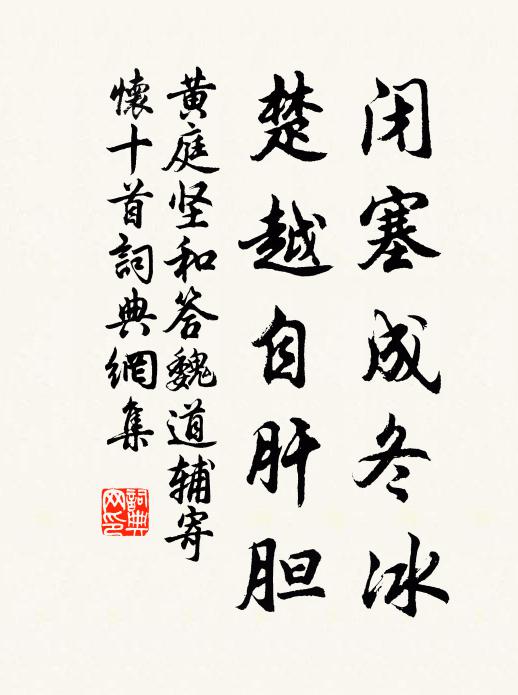 闭塞成冬冰
楚越自肝胆
黄庭坚和答魏道辅寄
懷十首詞典網集
詞典网印